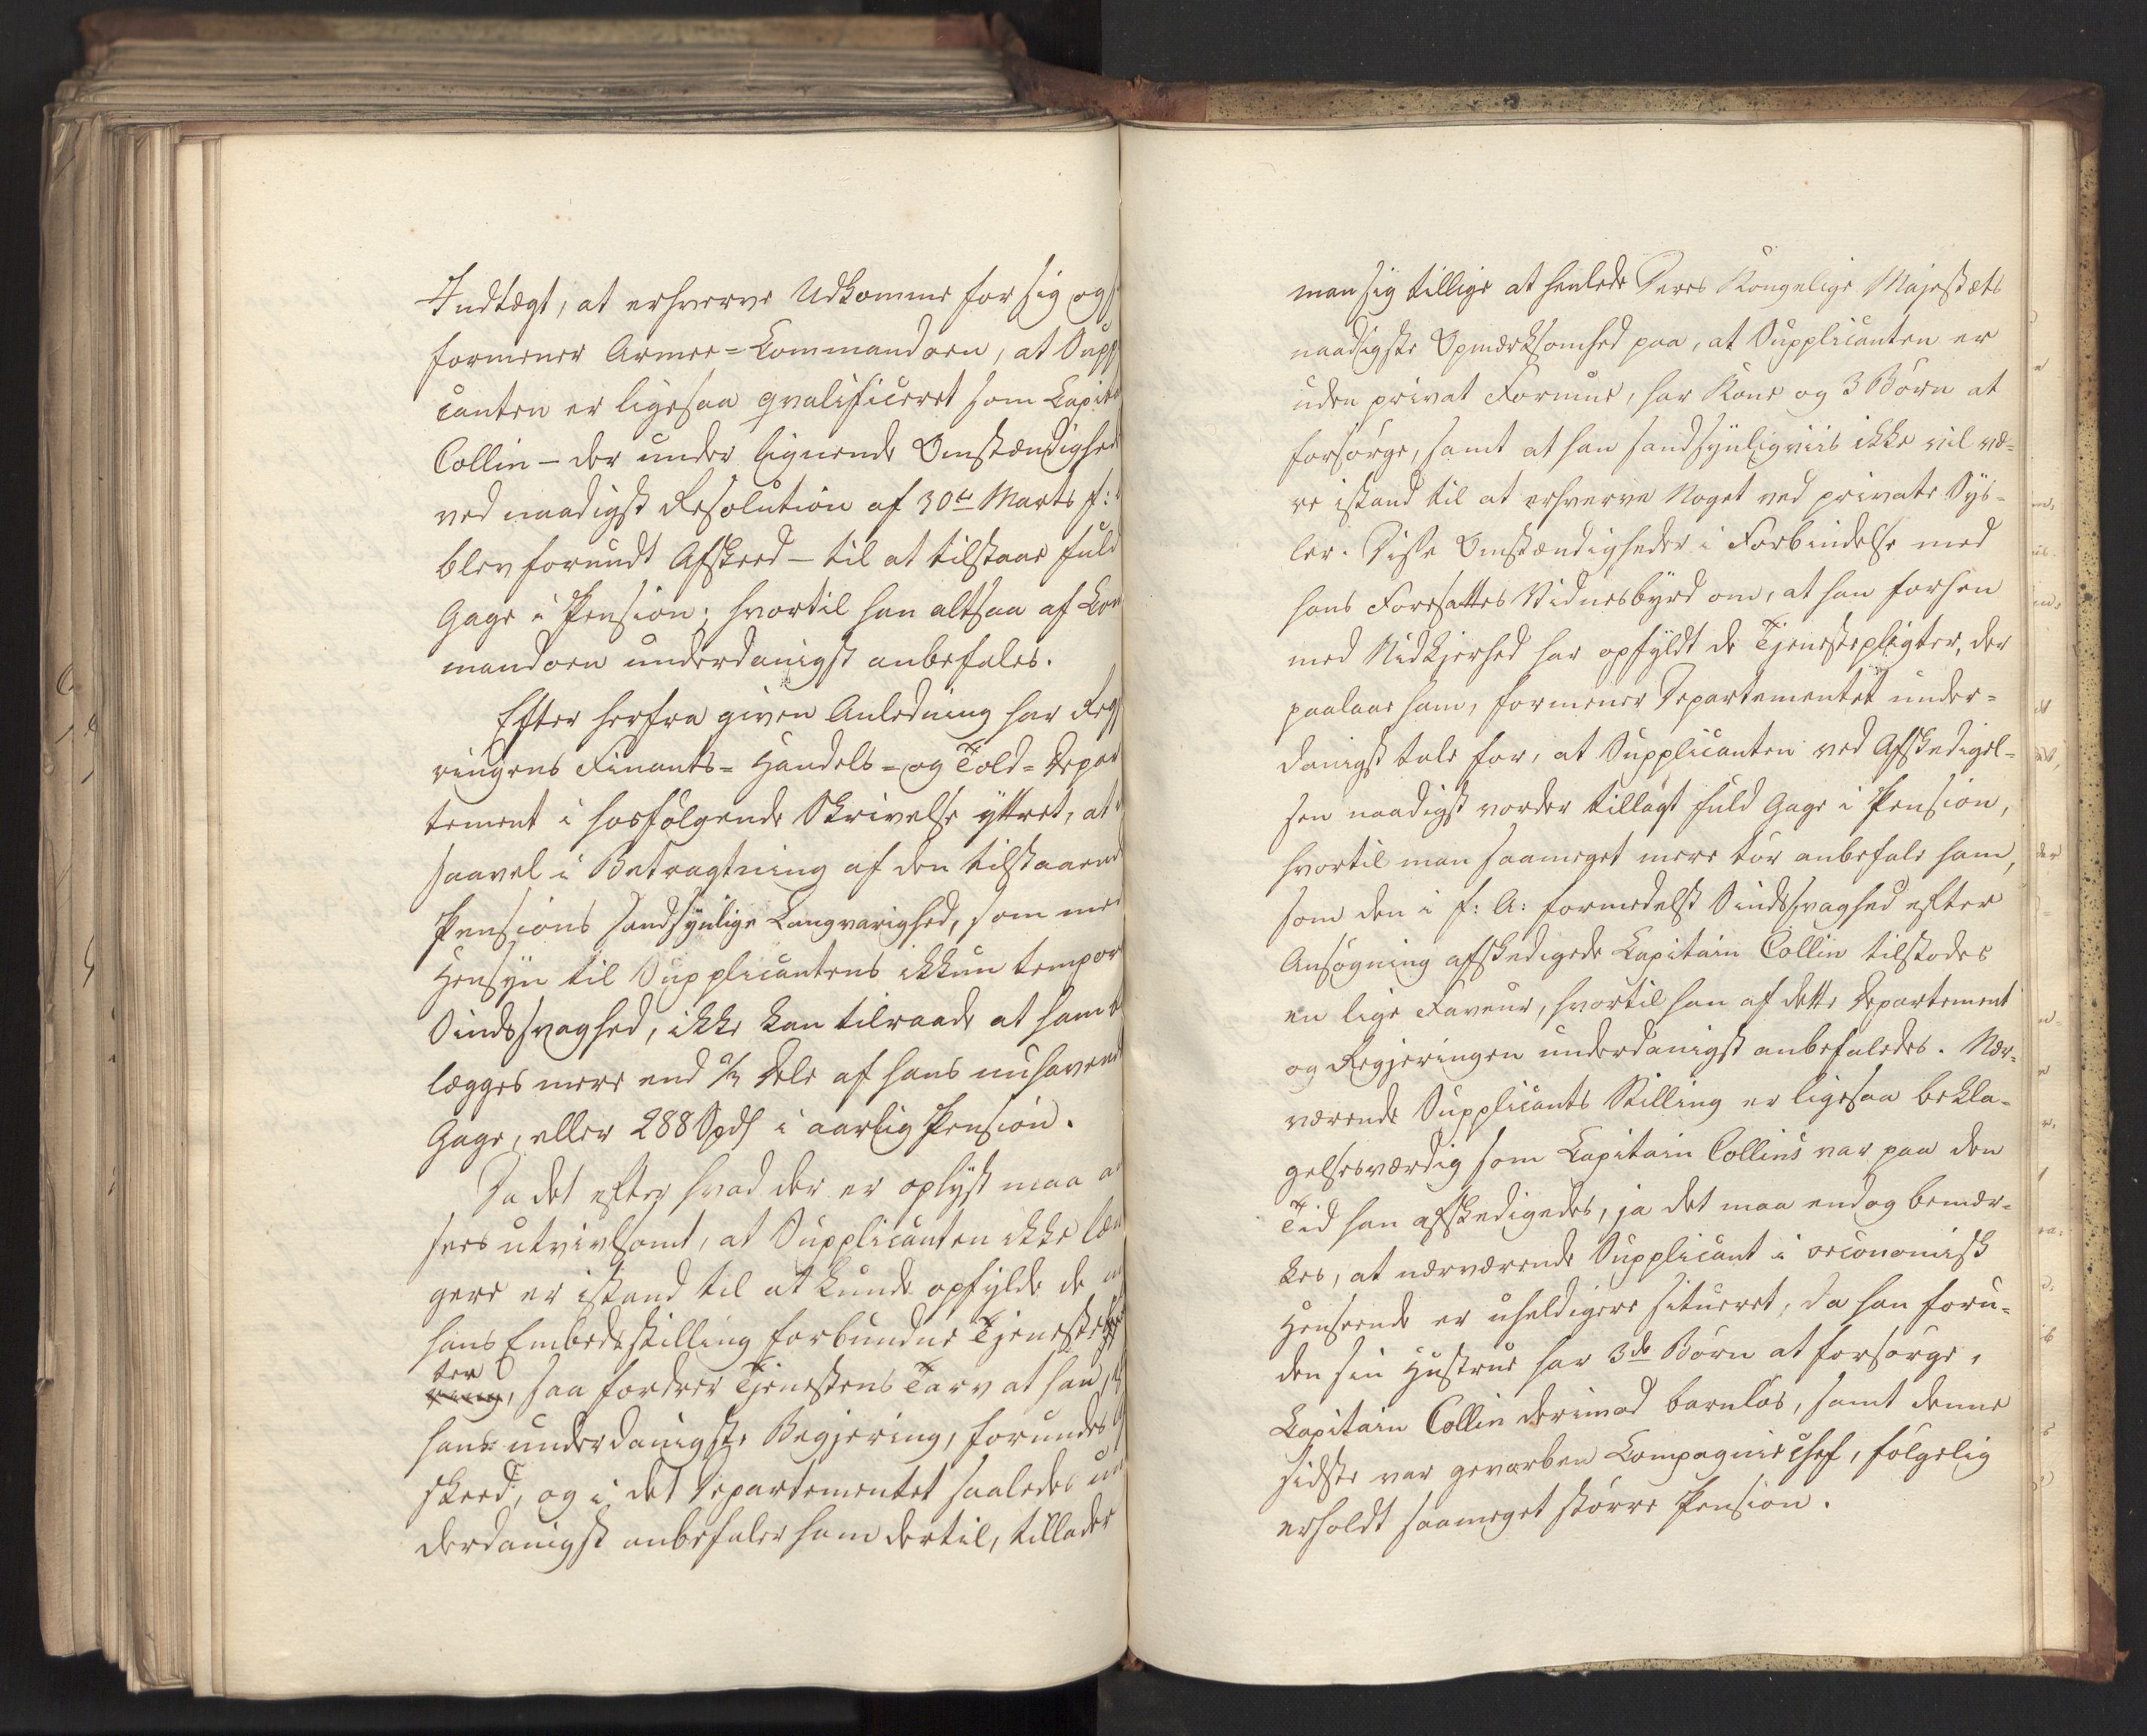 Indtægt, at erhverve Udkomme for sig og
formener Armee=Commandoen, at Supp
canten er ligesaa qvalificeret som Capit
Collin – der under lignende Omstændighed
ved naadigst Resolution af 30te Marts f:
blev forundt Afskeed – til at tilstaaes fuld
Gage i Pension; hvortil han altsaa af Com
mandoen underdanigst anbefales.
Efter herfra given Anledning har Regj
ringens Finants= Handels= og Told= Depar
tement i hosfølgende Skrivelse yttret, at
saavel i Betragtning af den tilstaaend
Pensions sandsynlige Langvarighed, som med
Hensyn til Supplicantens ikkun tempor
Sindssvaghed, ikke kan tilraade at ham
lægges mere end 2/3 Dele af hans nuhavend
Gage, eller 288 Spd i aarlig Pension.
Da det efter hvad der er oplyst maa an
sees utvivlsomt, at Supplicanten ikke læn
gere er istand til at kunde opfylde de
hans Embedsstilling forbundne Tjeneste
ter
, saa fordrer Tjenestens Tarv at han,
hans underdanigste Begjering, forundes
skeed, og i det Departementet saaledes un
derdanigst anbefaler ham dertil, tillader
man sig tillige at henlede Deres Kongelige Majestæts
naadigste Opmærksomhed paa, at Supplicanten er
uden privat Formue, har Kone og 3 Börn at
forsörge, samt at han sandsynligviis ikke vil væ=
re istand til at erhverve Noget ved private Sys=
ler. Disse Omstændigheder i Forbindelse med
hans Foresattes Vidnesbyrd om, at han forhen
med Nidkjerhed har opfyldt de Tjenestepligter, der
paalaae ham, formener Departementet under=
danigst tale for, at Supplicanten ved Afskedigel=
sen naadigst vorder tillagt fuld Gage i Pension,
hvortil man saameget mere tör anbefale ham,
som den i f: A: formedelst Sindssvaghed efter
Ansögning afskedigede Capitain Collin tilstodes
en lige Faveur, hvortil han af dette Departement
og Regjeringen underdanigst anbefaledes. Nær=
værende Supplicants Stilling er ligesaa bekla=
gelsesværdig som Capitain Collins var paa den
Tid han afskedigedes, ja det maa endog bemær=
kes, at nærværende Supplicant i oeconomisk
Henseende er uheldigere situeret, da han foru=
den sin Hustrue har 3de Börn at forsörge,
Capitain Collin derimod barnlös, samt denne
sidste var gevorben Compagniechef, fölgelig
erholdt saameget större Pension.